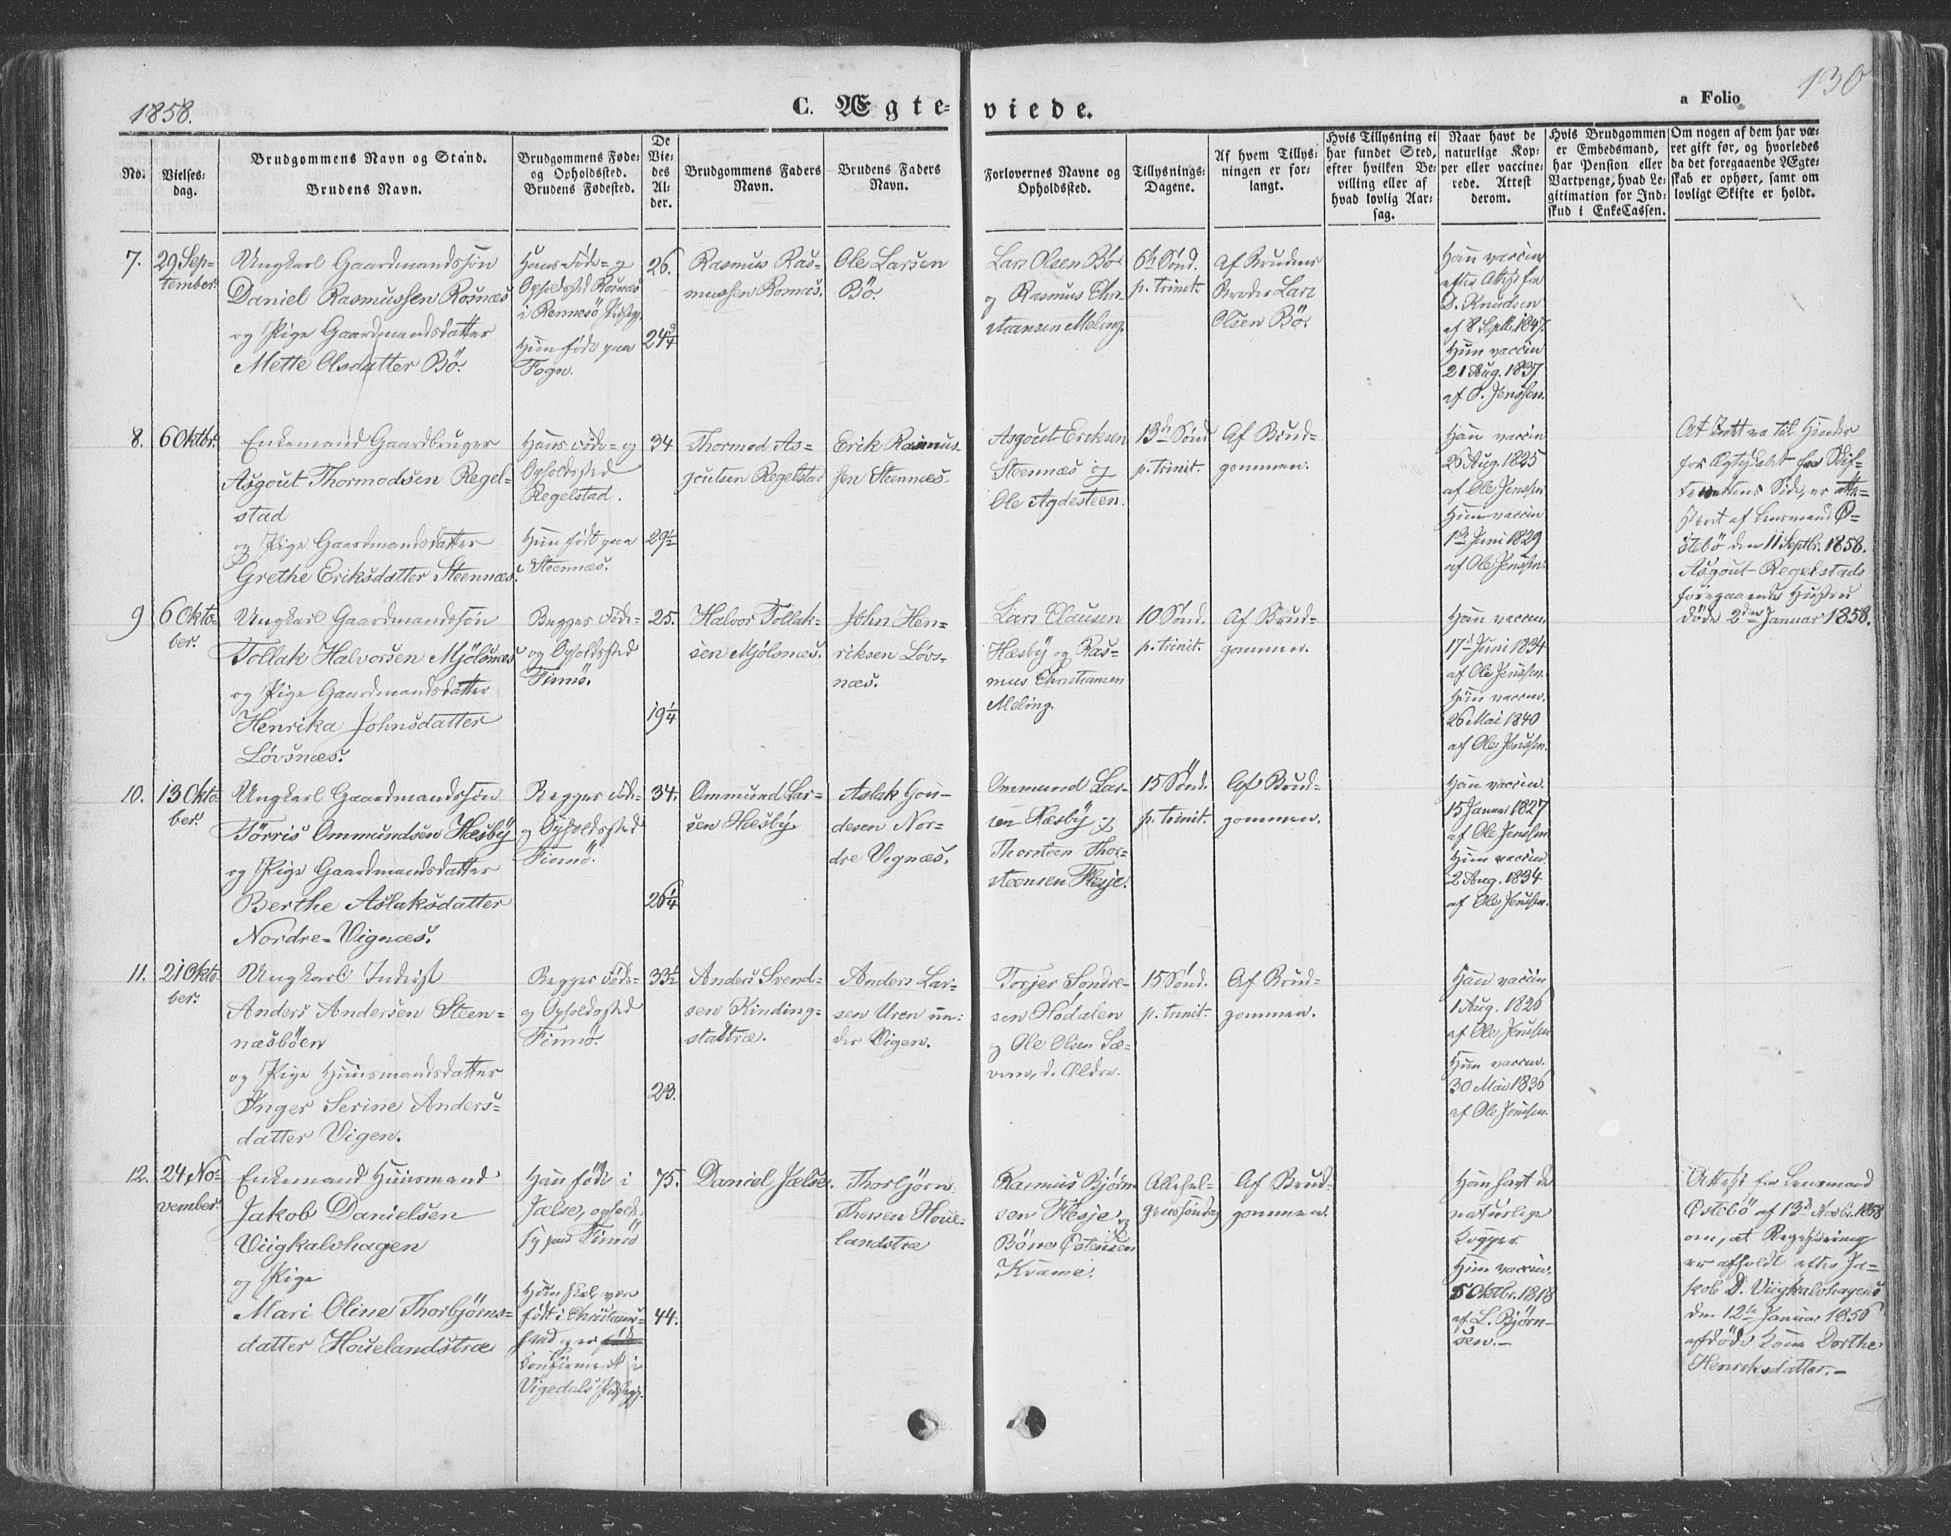 1858.
C. Ægte-
viede.
a Folio
130
No.
Vielses-
dag.
Brudgommens Navn og Stand.
Brudens Navn.
Brudgommens Føde-
og Opholdssted.
Brudens Fødested.
De
Vie-
des
Al-
der.
Brudgommens Faders
Navn.
Brudens Faders
Navn.
Forlovernes Navne og
Opholdssted.
Tillysnings-
Dagene.
Af hvem Tillys-
ningen er for-
langt.
Hvis Tillysning ei
har fundet Sted,
efter hvilken Be-
villing eller af
hvad lovlig Aar-
sag.
Naar havt de
naturlige Kop-
per eller vaccine-
rede. Attest
derom.
Hvis Brudgommen
er Embedsmand,
har Pension eller
Vartpenge, hvad Le-
gitimation for Ind-
skud i EnkeCassen.
Om nogen af dem har væ-
ret gift før, og hvorledes
da det foregaaende Ægte-
skab er ophørt, samt om
lovligt Skifte er holdt.
7.
29 Sep-
tember.
Ungkarl Gaardmandssøn
Daniel Rasmussen Rosnæs
og Pige Gaardmandsdatter
Mette Olsdatter Bö.
Hans Föde- og
Opholdssted Rosnæs
i Rennesö
Hun föde paa
Fogn.
26.
24 3/4
Rasmus Ras-
mussen Rosnæs.
Ole Larsen
Bö.
Lars Olsen Bö
og Rasmus Chri-
stiansen Meling.
6te Sönd.
p. trinit.
Af Brudens
Broder Lars
Olsen Bö.
Han vaccin
efter Attest fra
D. Knudsen
af 8 Septb. 1847.
Hun vaccin
21 Aug. 1837
af O. Jenssen.
8.
6 Oktbr.
Enkemand Gaardbruger
Asgout Thormodsen Regel-
stad
og Pige Gaardmandsdatter
Grethe Eriksdatter Steennæs.
Hans Föde- og
Opholdssted
Regelstad.
Hun födt paa
Steennæs.
34
29 1/2
Thormod As-
goutsen Regelstad
Erik Rasmus-
sen Steennæs.
Asgout Eriksen
Steennæs og
Ole Aydesteen.
13de Sönd
p. trinit.
Af Brud-
gommen.
Han vaccin
25 Aug. 1825
af Ole Jenssen
Hun vaccin
1ste Juni 1829
af Ole Jenssen.
At Intet er til Hinder
for Ægteskabet fra Skif-
terettens Side, er atte-
steret af Lensmand Ø-
stebö den 11 Septbr. 1858.
Asgout Regelstads
foregaaende Hustru
döde 2den Januar 1858.
9
6 Okto-
ber.
Ungkarl Gaardmandssön
Tollak Halvorsen Mjölsnæs
og Pige Gaardmandsdatter
Henrika Johnsdatter
Lövsnæs.
Begges Föde-
og Opholdssted
Finnö.
25.
19 1/4
Halvor Tollak-
sen Mjölsnæs.
John Hen-
riksen Lövs-
næs.
Lars Clausen
Hæsbÿ og Ras-
mus Christiansen
Meling.
10 Sönd.
p. trinit.
Af Brud-
gommen.
Han vaccin.
17 Juni 1834
af Ole Jenssen.
Hun vaccin.
26 Mai 1840
af Ole Jenssen.
10.
13 Okto-
ber.
Ungkarl Gaardmandssön
Törris Ommundsen Hæsbÿ
og Pige Gaardmandsdatter
Berthe Aslaksdatter
Nordre-Vignæs.
Begges Föde-
og Opholdssted
Finnö.
34.
26 1/4
Ommund Lar-
sen Hæsbÿ
Aslak Gou-
desen Nor-
dre Vignæs.
Ommund Lar-
sen Hæsbÿ og
Thorsteen Thor-
steensen Flesje.
15 Sönd.
p. trinit.
Af Brud-
gommen.
Han vaccin.
15 Januar 1827
af Ole Jenssen
Hun vaccin.
2 Aug. 1834
af Ole Jenssen.
11.
21 Okto-
ber.
Ungkarl Inderst
Anders Andersen Steen-
næsböen
og Pige Huusmandsdatter
Inger Serine Anders-
datter Vigen.
Begges Föde-
og Opholdssted
Finnö.
33 1/2
23.
Anders Svend-
sen Kinding-
stadtræ.
Anders Lar-
sen Uren un-
der Vigen.
Torjer Söndre-
sen Hödalen
og Ole Olsen Sæ-
vern, d. Ældre.
15 Sönd.
p. trinit.
Af Brud-
gommen.
Han vaccin
1 Aug. 1826
af Ole Jenssen
Hun vaccin.
30 Mai 1836
af Ole Jenssen.
12.
24 No-
vember.
Enkemand Huusmand
Jakob Danielsen
Viigkalvhagen
og Pige
Mari Oline Thorbjörns-
datter Houelandstræ
Han föde i
Jælse, ophold.
sig paa Finnö
Hun skal være
födt i Christians-
sand og er
konfirmert i
Vigedals
75.
44.
Daniel Jælse.
Thorbjörn
Thorsen Houe-
landstræ
Rasmus Björn-
sen Flesje og
Böne Östensen
Krame.
Allehel-
genssöndag
Af Brud-
gommen.
Han havt de
naturlige
Kopper
Hun vaccin.
5 Oktbr. 1818
af L. Björn-
sen.-
Attest fra Lensmand
Östebö af 13de Novbr. 1858
om, at Registrering
er afholdt efter Ja-
kob D. Viigkalvhagens
den 12te Januar 1856
afdöde Kone Dorthe
Henriksdatter.-